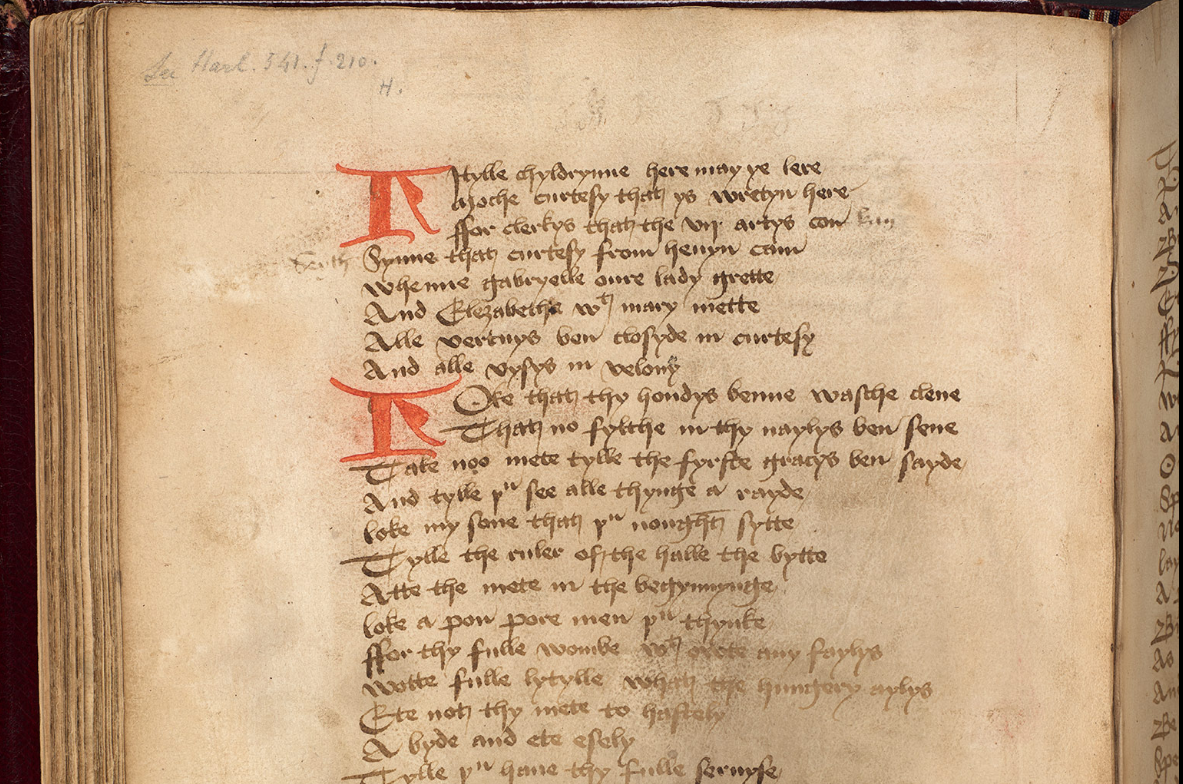 See Harl. 541. f. 210.
H.
LItylle chyldrynne here may ye lere
Moche curtesy that ys wretyn here
ffor clerkys that the vij artys con
Synne that curtesy from hevyn cam
Whenne gabryelle oure lady grette
And Elezabethe wt mary mette
Alle vertuys ben closyde in curtesy
And alle vysys in velony
LOke that thy hondys benne wasche clene
That no fylthe in thy naylys ben sene
Take noo mete tylle the fyrste gracys ben sayde
And tylle þu see alle thynge a rayde
loke my sone that þu nought sytte
Tylle the ruler of the halle the bytte
Atte the mete in the begynnynge
loke a pon pore men þu thynke
ffor thy fulle wombe wt owte any faylys
Wotte fulle lytylle what the hungery aylys
Ete not thy mete to hastely
A byde and ete esely
Tylle þu have thy fulle servyse